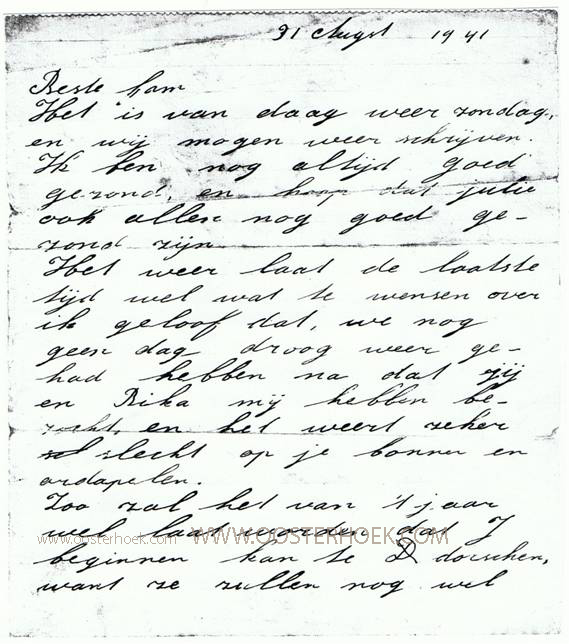 31 Augst 1941
Beste hom
Het is van daag weer zondag,
en wij mogen weer schrijven.
Ik ben nog altijd goed
gezond, en hoop dat julie
ook allen nog goed ge-
zond zijn
Het weer laat de laatste
tijd wel wat te wensen over
ik geloof dat, we nog
geen dag droog weer ge-
had hebben na dat jij
en Rika mij hebben be-
zocht, en het weert zeker
slecht op je bonnen en
ardapelen.
Zoo zal het van 't jaar
wel laat worden dat J
beginnen kan te dorschen,
want ze zullen nog wel
www.oosterhoek.com WWW.OOSTERHOEK.COM